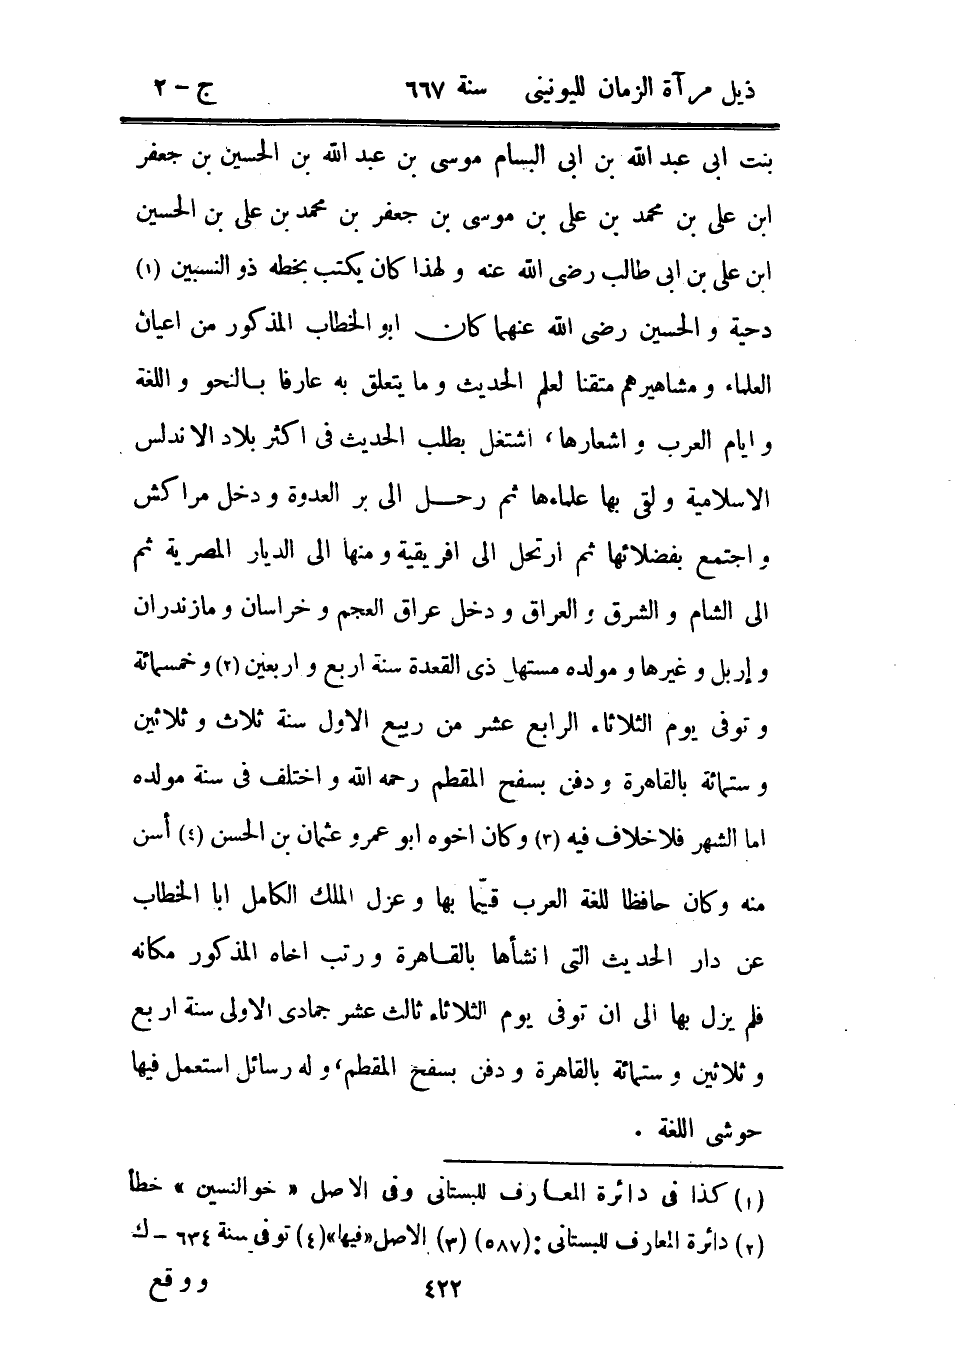 ذيل مرآة الزمان لليونينى سنة ٦٦٧ ج - ٢
بنت ابى عبد الله بن ابى البسام موسى بن عبد الله بن الحسين بن جعفر
ابن على بن محمد بن على بن موسى بن جعفر بن محمد بن على بن الحسين
ابن على بن ابى طالب رضى الله عنه و لهذا كان يكتب بخطه ذو النسبين (١)
دحية و الحسين رضى الله عنهما كان ابو الخطاب المذكور من اعيان
العلماء و مشاهيرهم متقنا لعلم الحديث و ما يتعلق به عارفا بالنحو و اللغة
و ايام العرب و اشعارها، اشتغل بطلب الحديث فى اكثر بلاد الاندلس
الاسلامية و لقى بها علماءها ثم رحل الى بر العدوة و دخل مراكش
و اجتمع بفضلائها ثم ارتحل الى افريقية و منها الى الديار المصرية ثم
الى الشام و الشرق و العراق و دخل عراق العجم و خراسان و مازندران
و إربل و غيرها و مولده مستهل ذى القعدة سنة اربع و اربعين (٢) و خمسمائة
و توفى يوم الثلاثاء الرابع عشر من ربيع الاول سنة ثلاث و ثلاثين
و ستمائة بالقاهرة و دفن بسفح المقطم رحمه الله و اختلف فى سنة مولده
اما الشهر فلا خلاف فيه (٣) وكان اخوه ابو عمرو عثمان بن الحسن (٤) أسن
منه وكان حافظا للغة العرب قيّما بها و عزل الملك الكامل ابا الخطاب
عن دار الحديث التى انشأها بالقاهرة و رتب اخاه المذكور مكانه
فلم يزل بها الى ان توفى يوم الثلاثاء ثالث عشر جمادى الاولى سنة اربع
و ثلاثين و ستمائة بالقاهرة و دفن بسفح المقطم، و له رسائل استعمل فيها
حوشى اللغة .
(١) كذا فى دائرة المعارف للبستانى وفى الاصل « خوالنسين » خطأ
(٢) دائرة المعارف للبستانى : (٥٨٧) (٣) الاصل «فيها» (٤) توفى سنة ٦٣٤ - ك
٤٢٢ و وقع